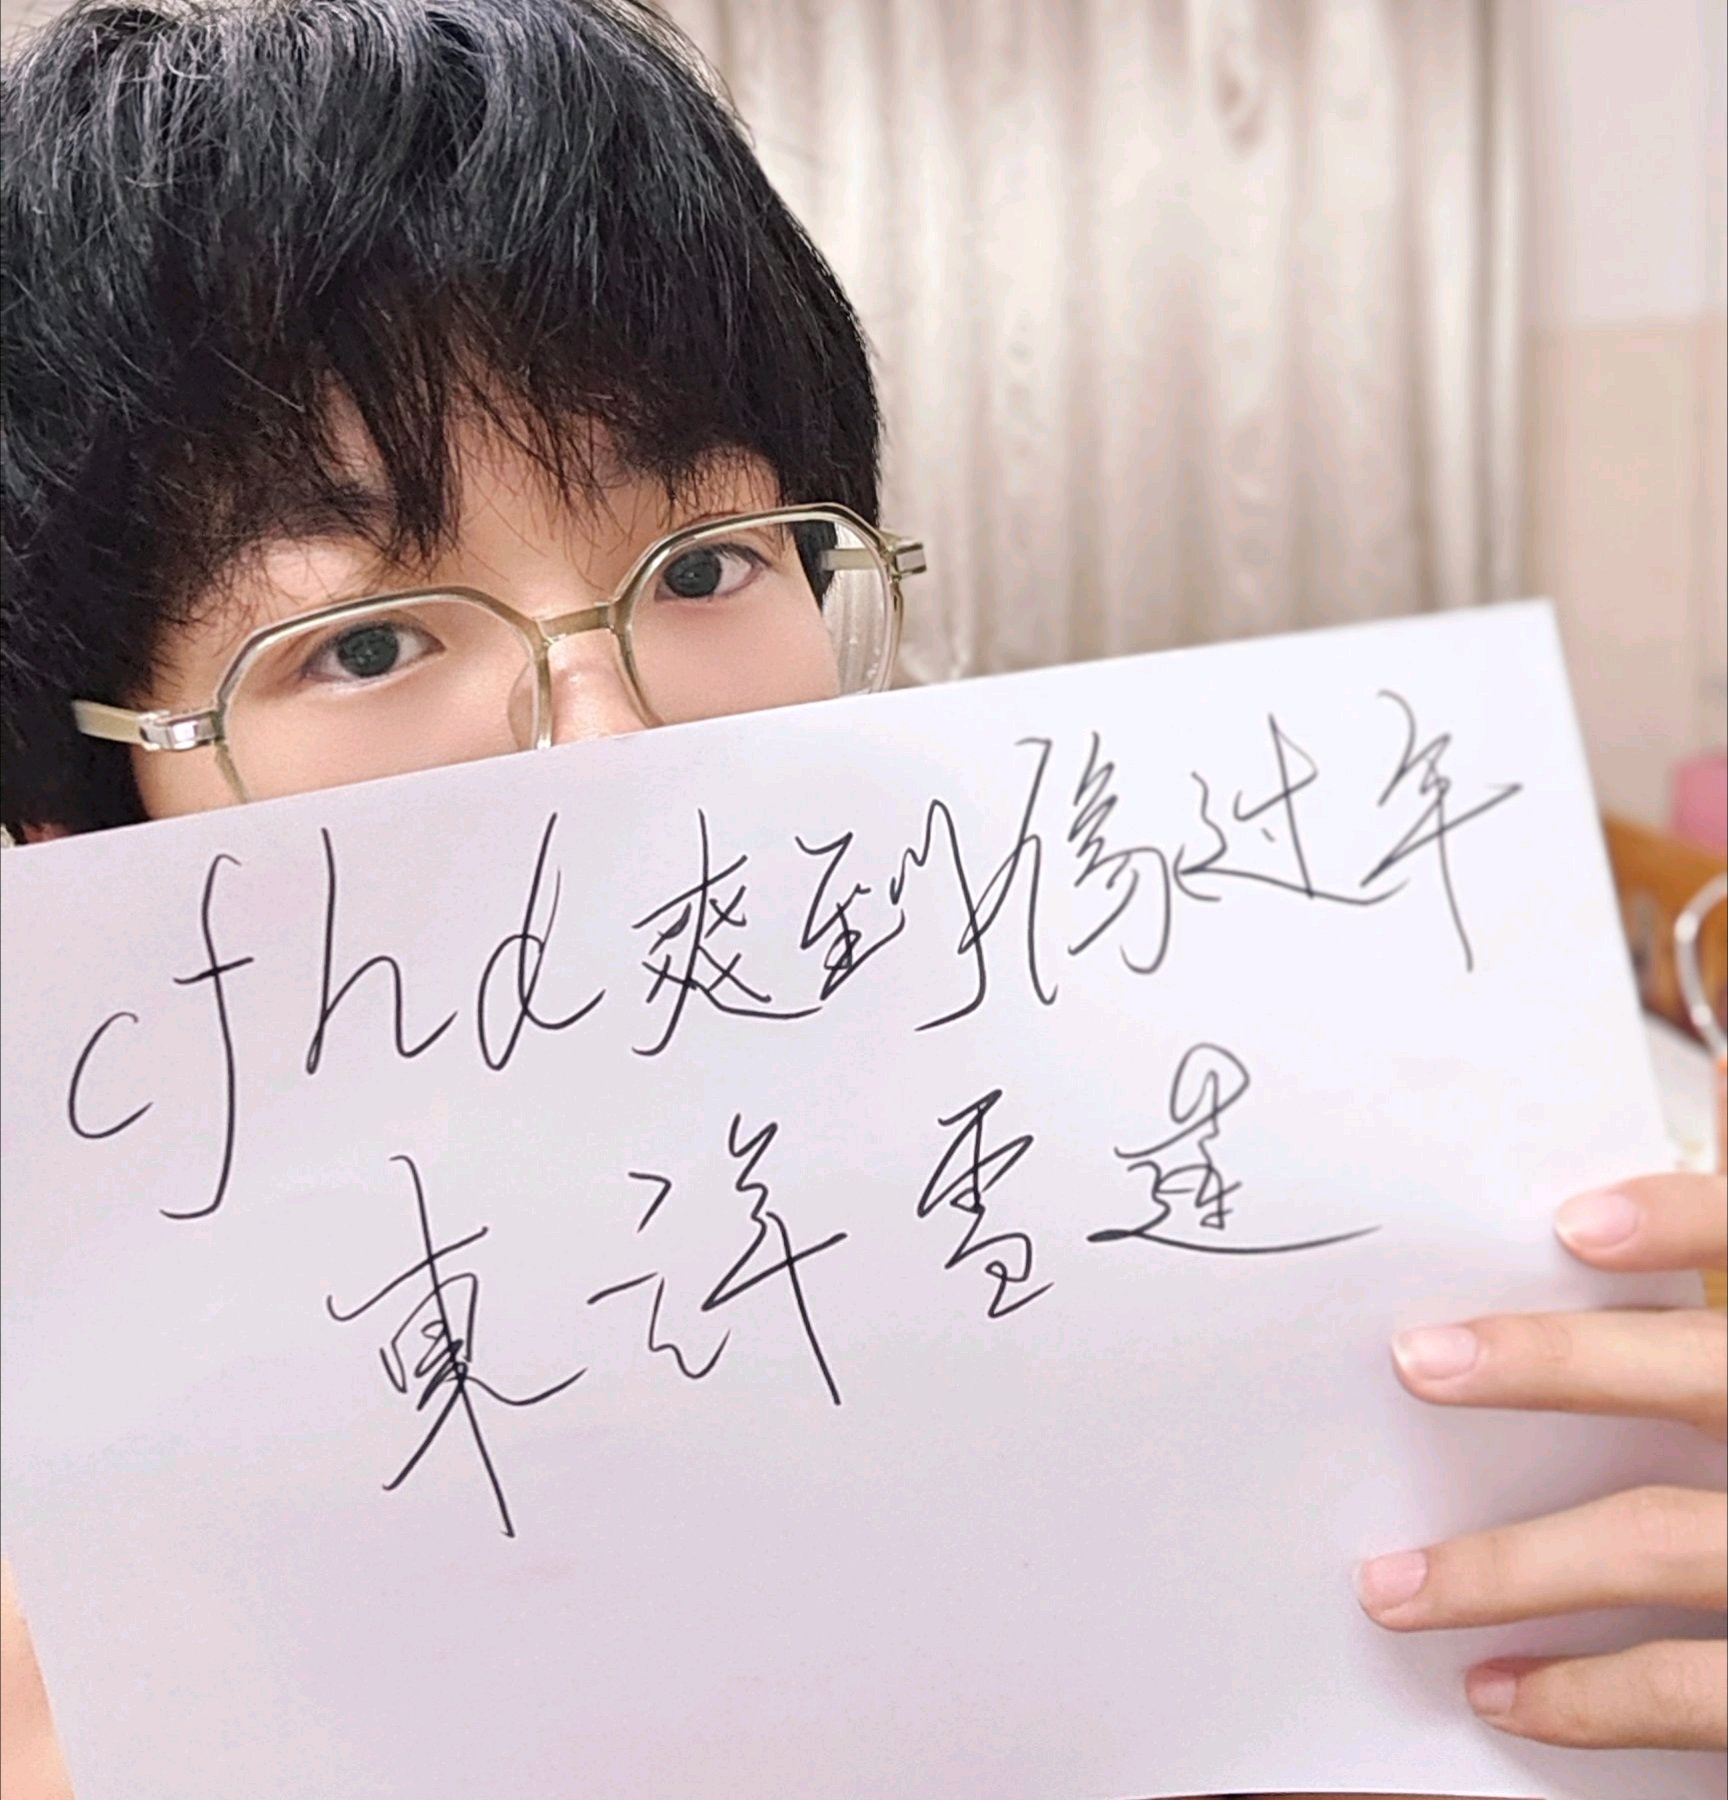 cfhd爽到像过年
東洋雪蓮